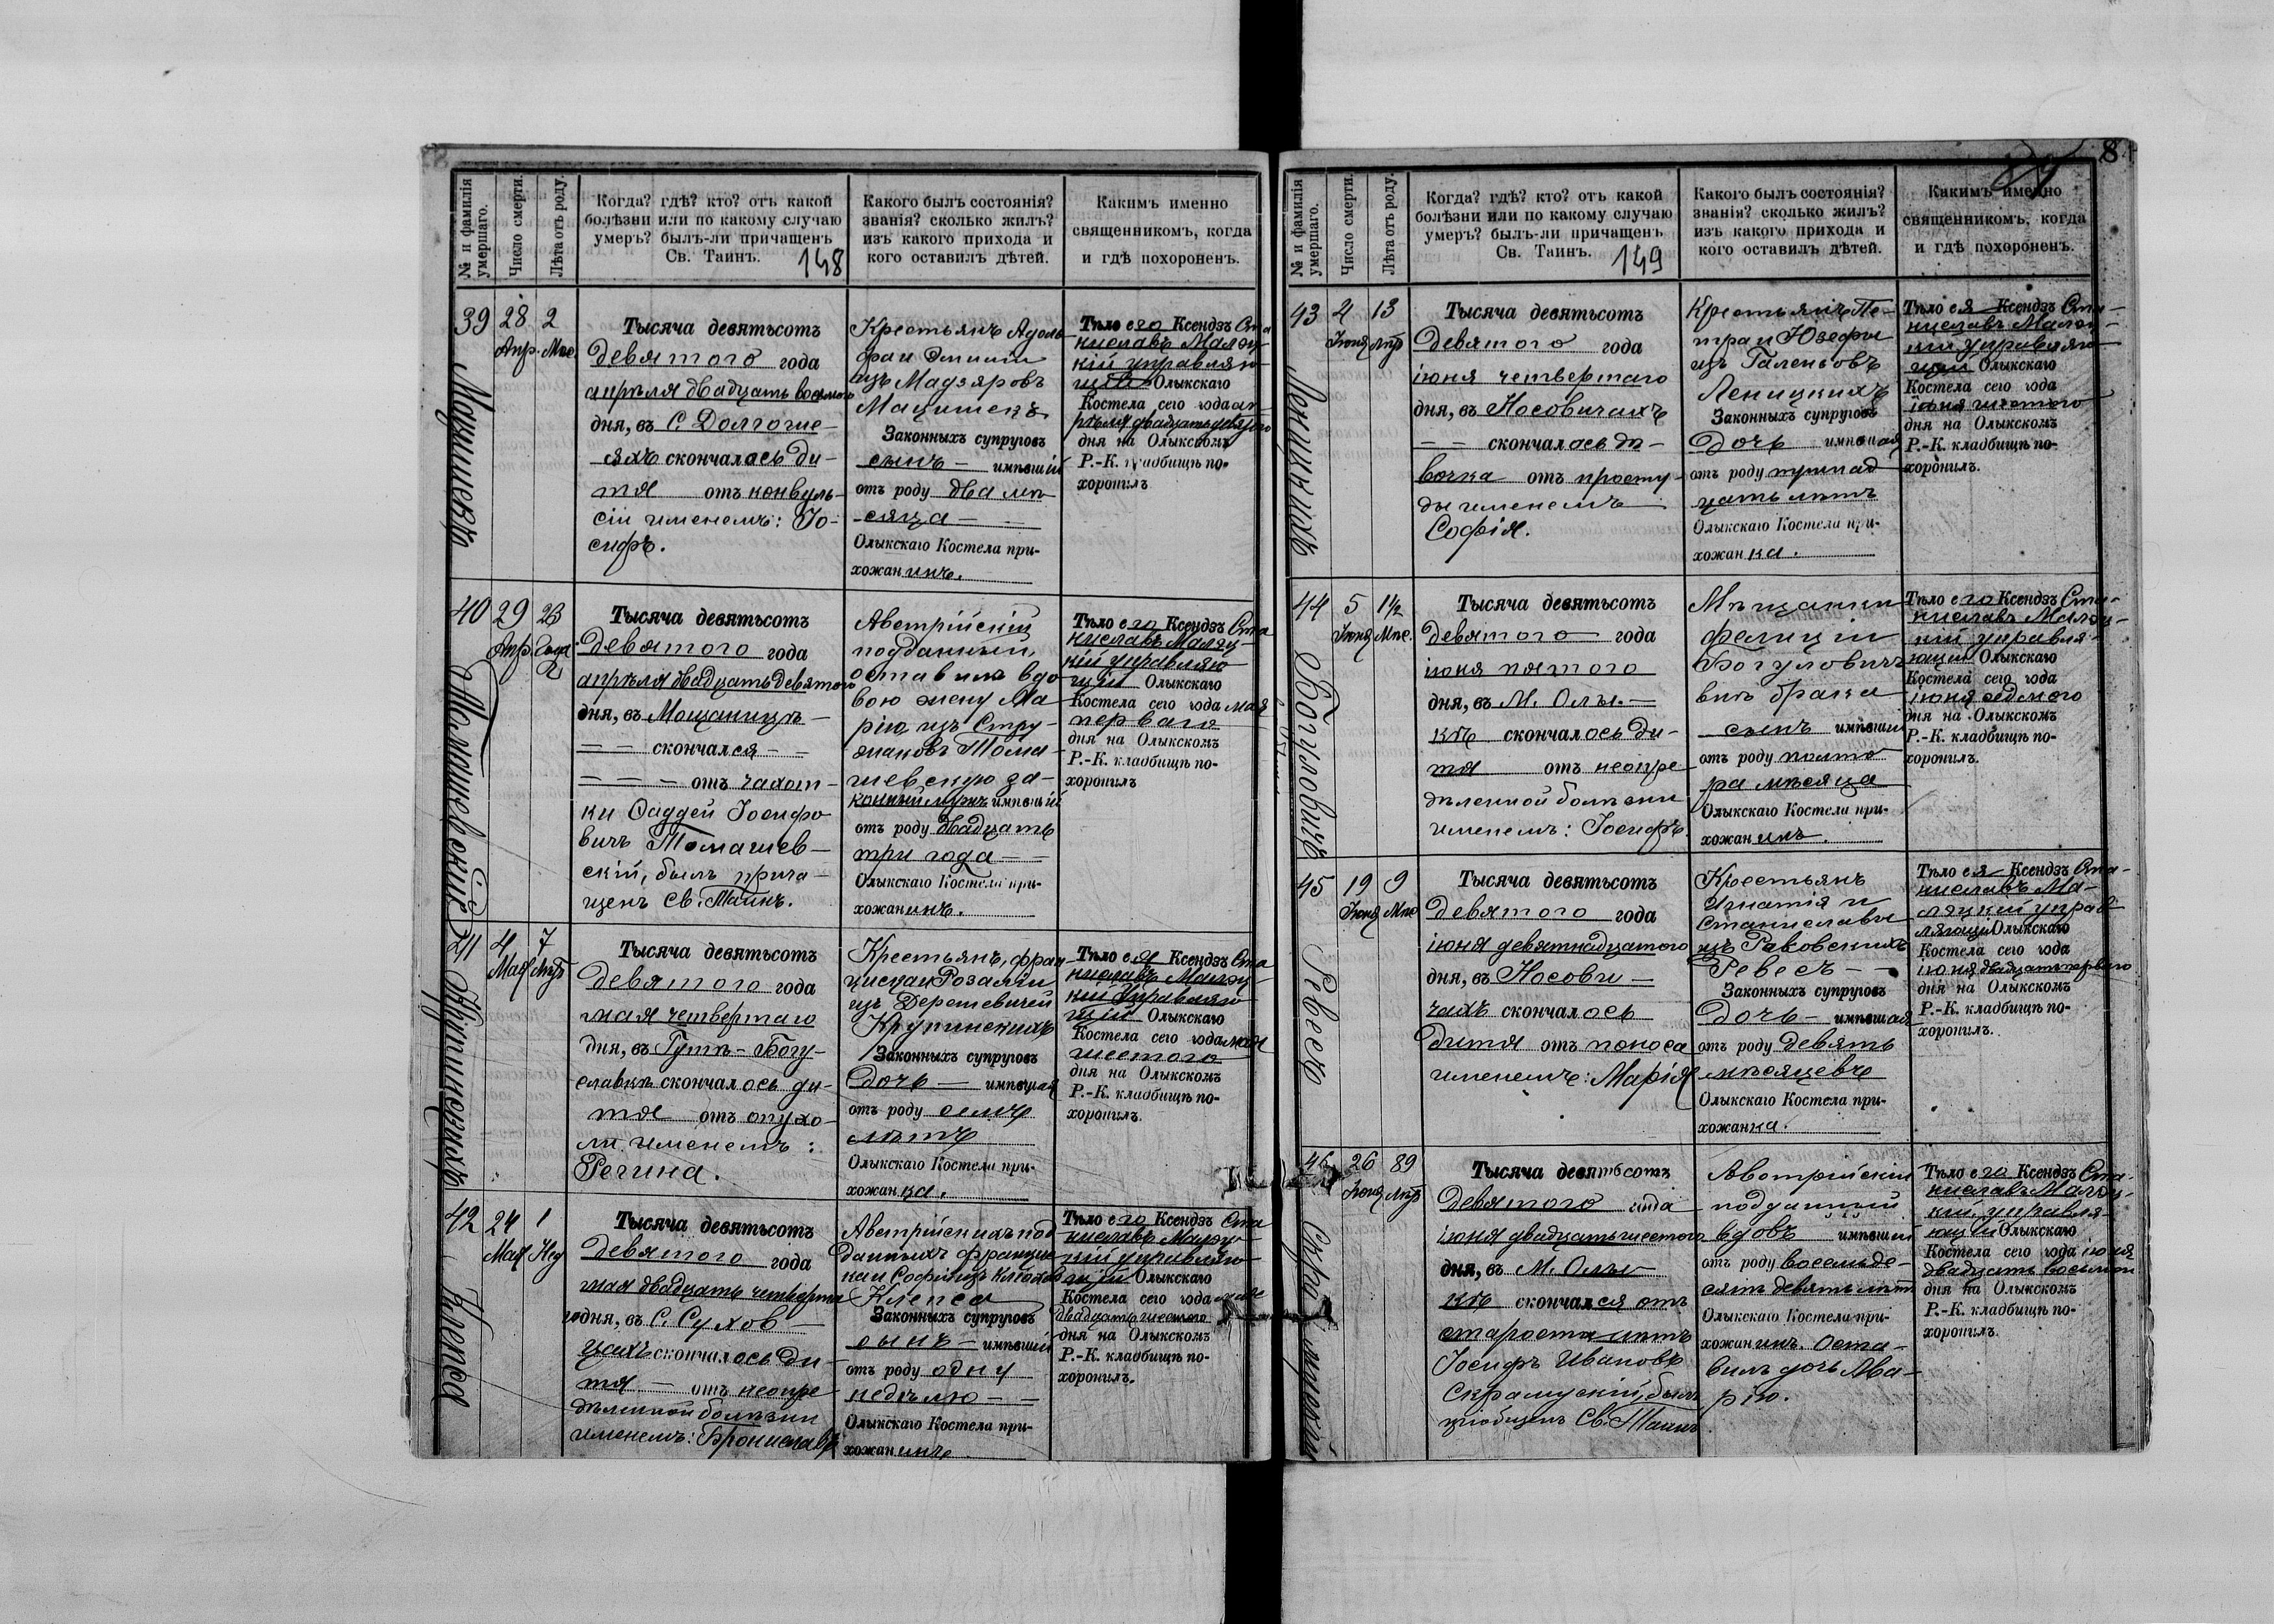 № и фамилія
умершаго.
Число смерти.
Лѣта отъ роду.
Когда? гдѣ? кто? отъ какой
болѣзни или по какому случаю
умеръ? былъ-ли причащенъ
Св. Таинъ. 148
Какого былъ состоянія?
званія? сколько жилъ?
изъ какого прихода и
кого оставилъ дѣтей.
Какимъ именно
священникомъ, когда
и гдѣ похороненъ.
39
28
Апр.
2
Мѣс.
Тысяча девятьсотъ
девятого года
апрѣля двадцать восьмого
дня, въ С. Долгоше-
яхъ скончалось ди-
тя отъ конвуль-
сіи именемъ: Іо-
сифъ.
Крестьянъ Адоль-
фа и Эмиліи
изъ Мадзяровъ
Мацишекъ
Законныхъ супруговъ
сынъ имѣвшій
отъ роду два мѣ-
сяца
Олыкскаго Костела при-
хожанинъ.
Тѣло его Ксендзъ Ста
ниславъ Маляц-
кій управляю-
щій Олыкскаго
Костела сего года ап-
рѣля двадцать девятого
дня на Олыкскомъ
Р.-К. кладбищѣ по-
хоронилъ
40
Томашевскій
29
Апр.
23
Года
Тысяча девятьсотъ
девятого года
апрѣля двадцать девятого
дня, въ Мощаницѣ
скончался
отъ чахот-
ки Фаддей Іосифо
вичъ Томашев-
скій, былъ прича-
щенъ Св. Таинъ.
Австрійскій
подданный,
оставилъ вдо-
вою жену Ма
рію изъ Стру-
жаковъ Тома-
шевскую за-
конный мужъ имѣвшій
отъ роду двадцать
три года
Олыкскаго Костела при-
хожанинъ.
Тѣло его Ксендзъ Ста
ниславъ Маляц-
кій управляю
щій Олыкскаго
Костела сего года мая
перваго
дня на Олыкскомъ
Р.-К. кладбищѣ по-
хоронилъ
41
Крупинскихъ
4
Мая
7
Лѣтъ
Тысяча девятьсотъ
девятого года
мая четвертаго
дня, въ Гутѣ-Богу-
славкѣ скончалось ди-
тя отъ опухо-
ли именемъ:
Регина.
Крестьянъ, Фран
циска и Розаліи
изъ Дерешевичей
Крупинскихъ
Законныхъ супруговъ
дочь имѣвшая
отъ роду семь
лѣтъ
Олыкскаго Костела при-
хожанка.
Тѣло ея Ксендзъ Ста
ниславъ Маляц-
кій Управляю
щій Олыкскаго
Костела сего года мая
шестого
дня на Олыкскомъ
Р.-К. кладбищѣ по-
хоронилъ.
42
Клепса
24
Мая
1
Нед
Тысяча девятьсотъ
девятого года
мая двадцать четверта
го дня, въ С. Сухов-
цахъ скончалось ди-
тя отъ неопре
дѣленной болѣзни
именемъ: Брониславъ
Австрійскихъ под
данныхъ Францис
ка и Софіи изъ
Клепса
Законныхъ супруговъ
сынъ имѣвшій
отъ роду одну
недѣлю
Олыкскаго Костела при-
хожанинъ
Тѣло его Ксендзъ Ста
ниславъ Маляц-
кій управляю-
щій Олыкскаго
Костела сего года мая
двадцать шестого
дня на Олыкскомъ
Р.-К. кладбищѣ по-
хоронилъ.
8
№ и фамилія
умершаго.
Число смерти.
Лѣта отъ роду.
Когда? гдѣ? кто? отъ какой
болѣзни или по какому случаю
умеръ? былъ-ли причащенъ
Св. Таинъ. 149
Какого былъ состоянія?
званія? сколько жилъ?
изъ какого прихода и
кого оставилъ дѣтей.
Какимъ именно
священникомъ, когда
и гдѣ похороненъ.
43
Леницкихъ
4
Іюня
13
Лѣтъ
Тысяча девятьсотъ
девятого года
іюня четвертаго
дня, въ Носовичахъ
скончалась дѣ-
вочка отъ просту-
ды именемъ
Софія.
Крестьянъ Пе-
тра и Юзефы
изъ Галеньовъ
Леницкихъ
Законныхъ супруговъ
дочь имѣвшая
отъ роду тринад
цать лѣтъ
Олыкскаго Костела при-
хожанка.
Тѣло ея Ксендзъ Ста-
ниславъ Маляц-
кій управляю-
щій Олыкскаго
Костела сего года
іюня шестого
дня на Олыкскомъ
Р.-К. кладбищѣ по-
хоронилъ.
44
Богуловичъ
5
Іюня
1½
Мѣс.
Тысяча девятьсотъ
девятого года
іюня пятого
дня, въ М. Олы-
кѣ скончалось ди-
тя отъ неопре
дѣленной болѣзни
именемъ: Іосифъ
Мѣщанки
Фелиціи
Богуловичъ
внѣ брака
сынъ имѣвшій
отъ роду полто
ра мѣсяца
Олыкскаго Костела при-
хожанинъ.
Тѣло его Ксендзъ Ста-
ниславъ Маляц-
кій управля-
ющій Олыкскаго
Костела сего года
іюня седмого
дня на Олыкскомъ
Р.-К. кладбищѣ по-
хоронилъ.
45
Ревесъ
19
Іюня
9
Мѣс
Тысяча девятьсотъ
девятого года
іюня девятнадцатого
дня, въ Носови-
чахъ скончалось
дитя отъ поноса
именемъ: Марія
Крестьянъ
Игнатія и
Станиславы
изъ Раковскихъ
Ревесъ
Законныхъ супруговъ
дочь имѣвшая
отъ роду девять
мѣсяцевъ
Олыкскаго Костела при-
хожанка.
Тѣло ея Ксендзъ Ста-
ниславъ Ма-
ляцкій управ
ляющій Олыкскаго
Костела сего года
іюня двадцать перваго
дня на Олыкскомъ
Р.-К. кладбищѣ по-
хоронилъ.
46
26
Іюня
89
Лѣтъ
Тысяча девятьсотъ
девятого года
іюня двадцать шестого
дня, въ М. Олы-
кѣ скончался отъ
старости лѣтъ
Іосифъ Ивановъ
былъ
Св. Таинъ.
Австрійскій
подданный
вдовъ имѣвшій
отъ роду восемьде-
сятъ девять лѣтъ
Олыкскаго Костела при-
хожанинъ. Оста-
вилъ дочь Ма-
рію.
Тѣло его Ксендзъ Ста-
ниславъ Маляц-
кій управля-
ющій Олыкскаго
Костела сего года іюня
двадцать восьмого
дня на Олыкскомъ
Р.-К. кладбищѣ по-
хоронилъ.